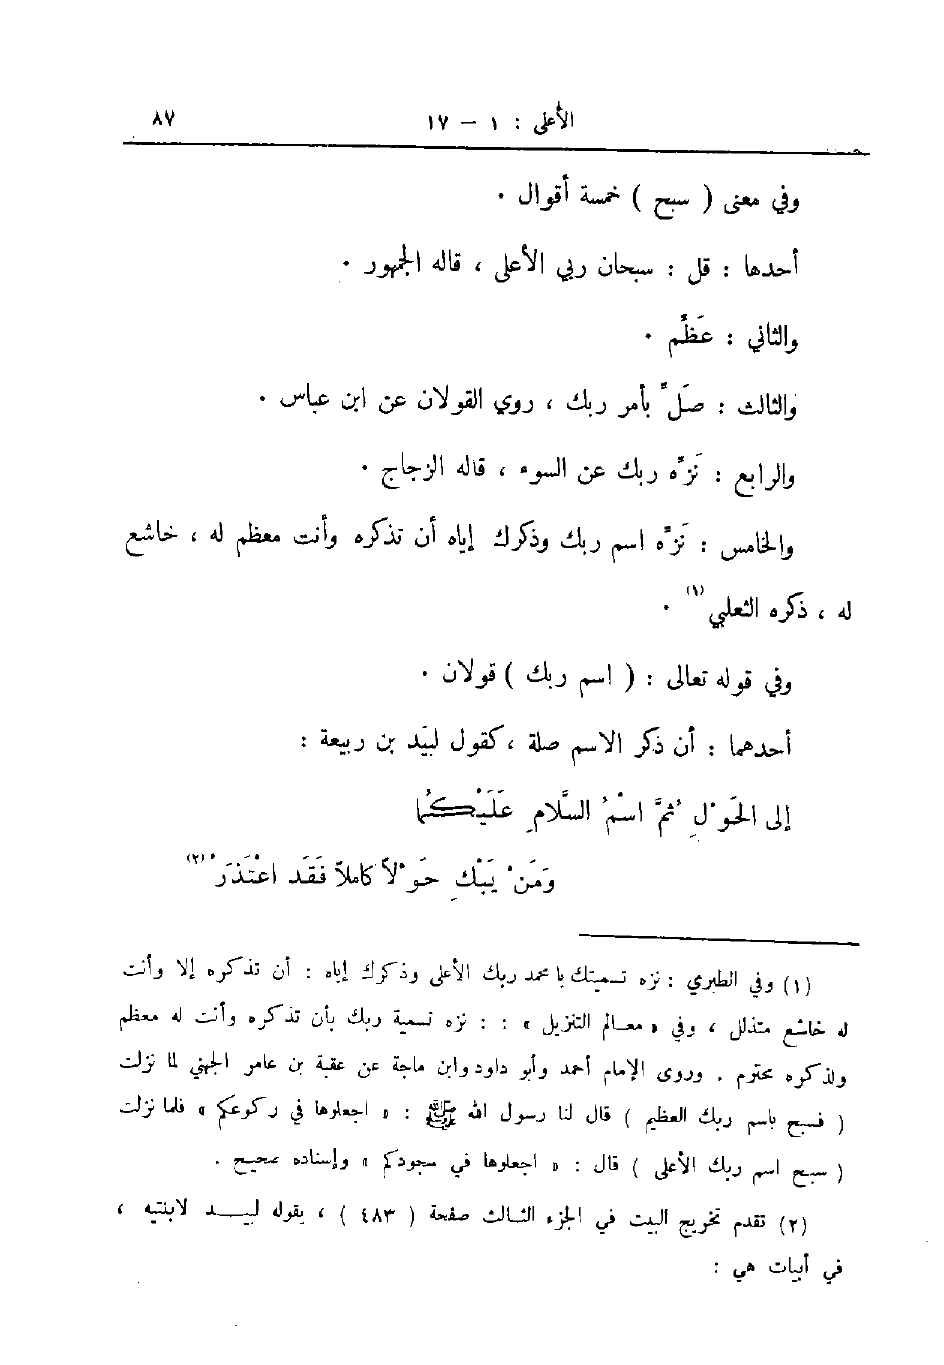 الأعلى : ١ – ١٧ ٨٧
وفي معنى ( سبح ) خمسة أقوال .
أحدها : قل : سبحان ربي الأعلى ، قاله الجمهور .
والثاني : عَظِّم .
والثالث : صَلِّ بأمر ربك ، روي القولان عن ابن عباس .
والرابع : نَزِّه ربك عن السوء ، قاله الزجاج .
والخامس : نَزِّه اسم ربك وذكرك إياه أن تذكره وأنت معظم له ، خاشع
له ، ذكره الثعلبي (١) .
وفي قوله تعالى : ( اسم ربك ) قولان .
أحدهما : أن ذكر الاسم صلة ، كقول لبيد بن ربيعة :
إلى الحَوْلِ ثمَّ اسْمُ السَّلامِ عَلَيْكُما
وَمَنْ يَبْكِ حَوْلاً كاملاً فَقَد اعْتَذَرْ (٢)
(١) وفي الطبري : نزه تسميتك يا محمد ربك الأعلى وذكرك إياه : أن تذكره إلا وأنت
له خاشع متذلل ، وفي « معالم التنزيل » : : نزه تسمية ربك بأن تذكره وأنت له معظم
ولذكره محترم . وروى الإمام أحمد وأبو داود وابن ماجة عن عقبة بن عامر الجهني لما نزلت
( فسبح باسم ربك العظيم ) قال لنا رسول الله ﷺ : « اجعلوها في ركوعكم » فلما نزلت
( سبح اسم ربك الأعلى ) قال : « اجعلوها في سجودكم » وإسناده صحيح .
(٢) تقدم تخريج البيت في الجزء الثالث صفحة ( ٤٨٣ ) ، يقوله لبيد لابنتيه ،
في أبيات هي :